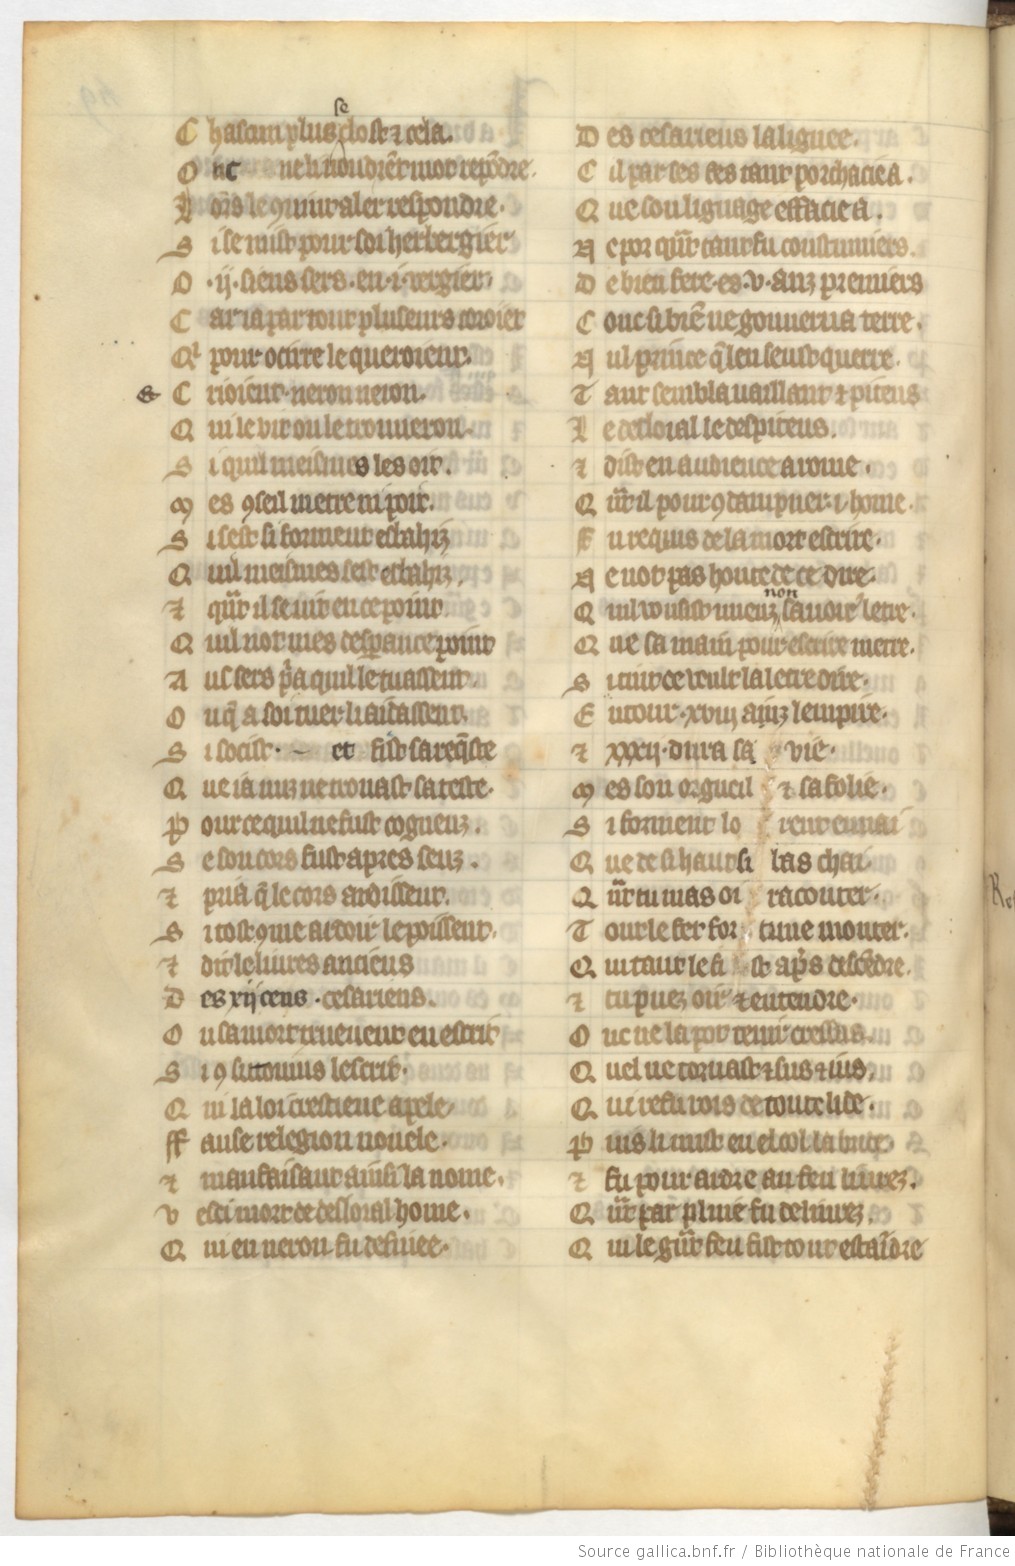 C hascun plus se clost et cela.
O nc ne li voudrẽt mot respõdre.
L ors le 9mint aler respondre.
S i se mist pour soi herbergier
O .ij. siens sers. en .i. vergier.
C ar ia par tout pluseurs coroiẽt
Q¹ pour ocirre le queroient.
& C rioient. neron neron.
Q ui le vit ou le trouueron.
S i quil meismes les oit.
M es 9seil metre ni poit.
S i sest si forment esbahiz
Q uil meismes sest enhahiz.
⁊ qũt il se vit en ce point
Q uil not mes desperance point
A us sers p̃a quil le tuassent.
O u q̃ a soi tuer li aidassent.
S i socist. et fist sa req̃ste
Q ue ia nuz ne trouast sa teste.
P our ce quil ne fust cogneuz.
S e son cors fust apres seuz.
⁊ pria q̃ le cors ardissent.
S i tost 9me ardoir le poissent.
⁊ dit le liures anciens
D es xij cens. cesariens.
O u sa mort truevent en escrit
S i 9 suttonius lescrit.
Q ui la loi crestiene apele.
ff ause relegion nouele.
⁊ maufaisant ainsi la nome.
V esci mort de desloial home.
Q ui en neron fu definee.
D es cesariens la lignee.
C il par ses fes tant porchacie a.
Q ue son lignage effacie a.
N e por qũt tant fu coustumiers.
D e bien fere. es .v. anz premiers
C onc si biẽ ne gouuerna terre.
N ul prince q̃ len seust querre.
T ant sembla vaillant ⁊ piteus
L e desloial le despiteus.
⁊ dist en audience a rome.
Q ũt il pour 9dampner .i. home.
F u requis de la mort escrire.
N e not pas honte de ce dire.
Q uil vousist mieuz non sauoir letre.
Q ue sa main pour escrire metre.
S i tint ce veult la letre dire.
E ntour .xviij anz lempire.
⁊ xxxij. dura sa vie.
M es son orgueil ⁊ sa folie.
S i forment lo rent enuai
Q ue de si haut si las chai.
Q ũt tu mas oi raconter.
T out le fer for tune monter.
Q ui tant le fi st ap̃s descẽdre.
⁊ tu puez oir ⁊ entendre.
O nc ne la pot tenir cressus.
Q uel ne tornast ⁊ sus ⁊ ius.
Q ui refu rois de toute lide.
P uis li mist en el col la bride.
⁊ fu pour ardre au feu liurez.
Q ũt par pluie fu deliurez.
Q ui le grãt feu fist tout estaĩdre
Source gallica.bnf.fr / Bibliothèque nationale de France